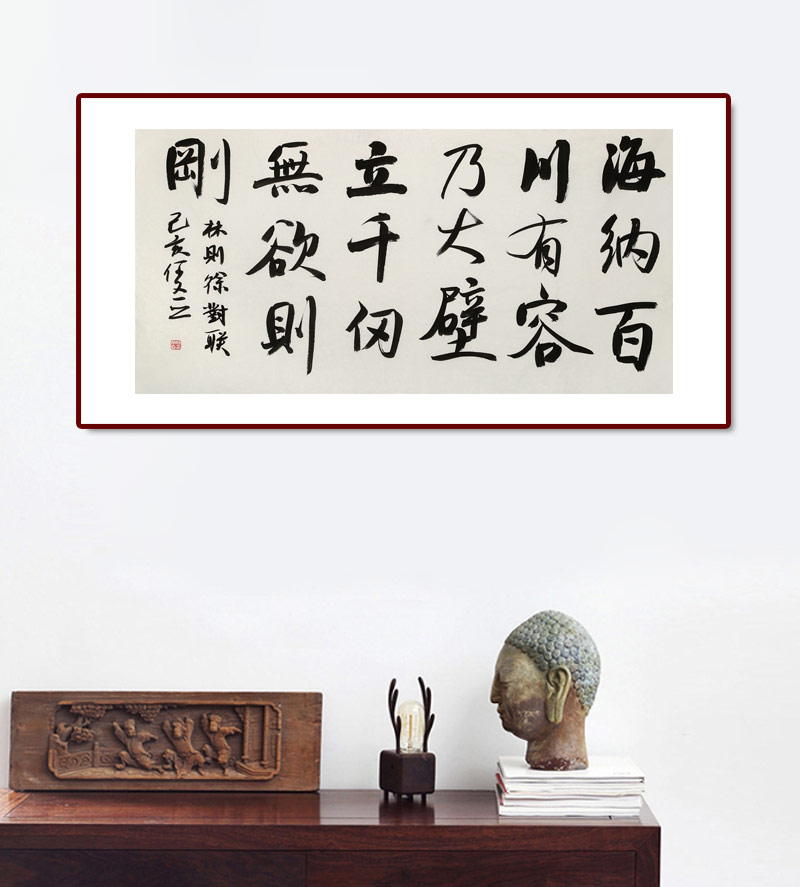 海納百
川有容
乃大壁
立千仞
無欲則
剛
林則徐對联
己亥任文立